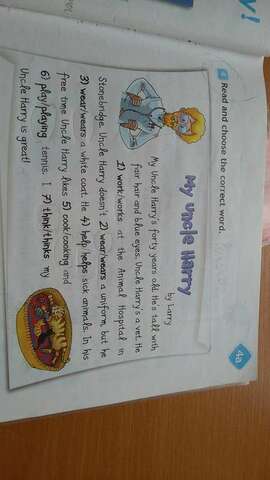 y!
4a
4 Read and choose the correct word.
My Uncle Harry
by Larry
My Uncle Harry's forty years old. He's tall with
fair hair and blue eyes. Uncle Harry's a vet. He
1) work/works at the Animal Hospital in
Stonebridge. Uncle Harry doesn't 2) wear/wears a uniform, but he
3) wear/wears a white coat. He 4) help/helps sick animals. In his
free time Uncle Harry likes 5) cook/cooking and
6) play/playing tennis. I 7) think/thinks my
Uncle Harry is great!